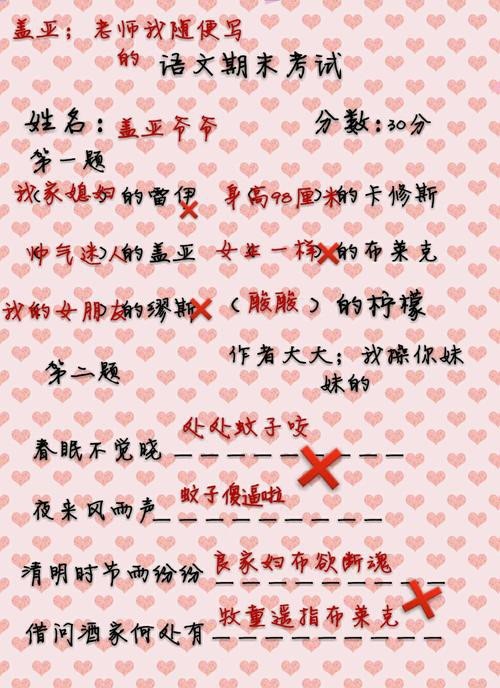 盖亚；老师我随便写
的
语文期末考试
姓名：盖亚爷爷 分数:30分
第一题
我家媳妇的雷伊 身(高98厘)米的卡修斯
帅气迷人)的盖亚 女生一样)的布莱克
我的女朋友)的缪斯 (酸酸)的柠檬
作者大大；我操你妹
妹的
第二题
春眠不觉晓 处处蚊子咬
夜来风雨声 蚊子傻逼啦
清明时节雨纷纷 良家妇布欲断魂
借问酒家何处有 牧童遥指布莱克